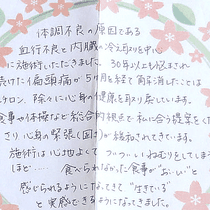 体調不良の原因である
血行不良と内臓の冷え等を中心
に施術いただきました。30年以上も悩まされ
続けた偏頭痛が5ヶ月を経て解消したことは
除々に心身の健康を取り戻しています。
食事や体操など総合的視点で私に合う提案をくだ
さり、心身の緊張(固さ)が緩和されてきています。
施術は心地よくて、ついついねむりをしてしまう
ほど…… 食べられなかった食事が"おいしい"と
感じられるようになってきて"生きている"
と実感できるようになってきました。